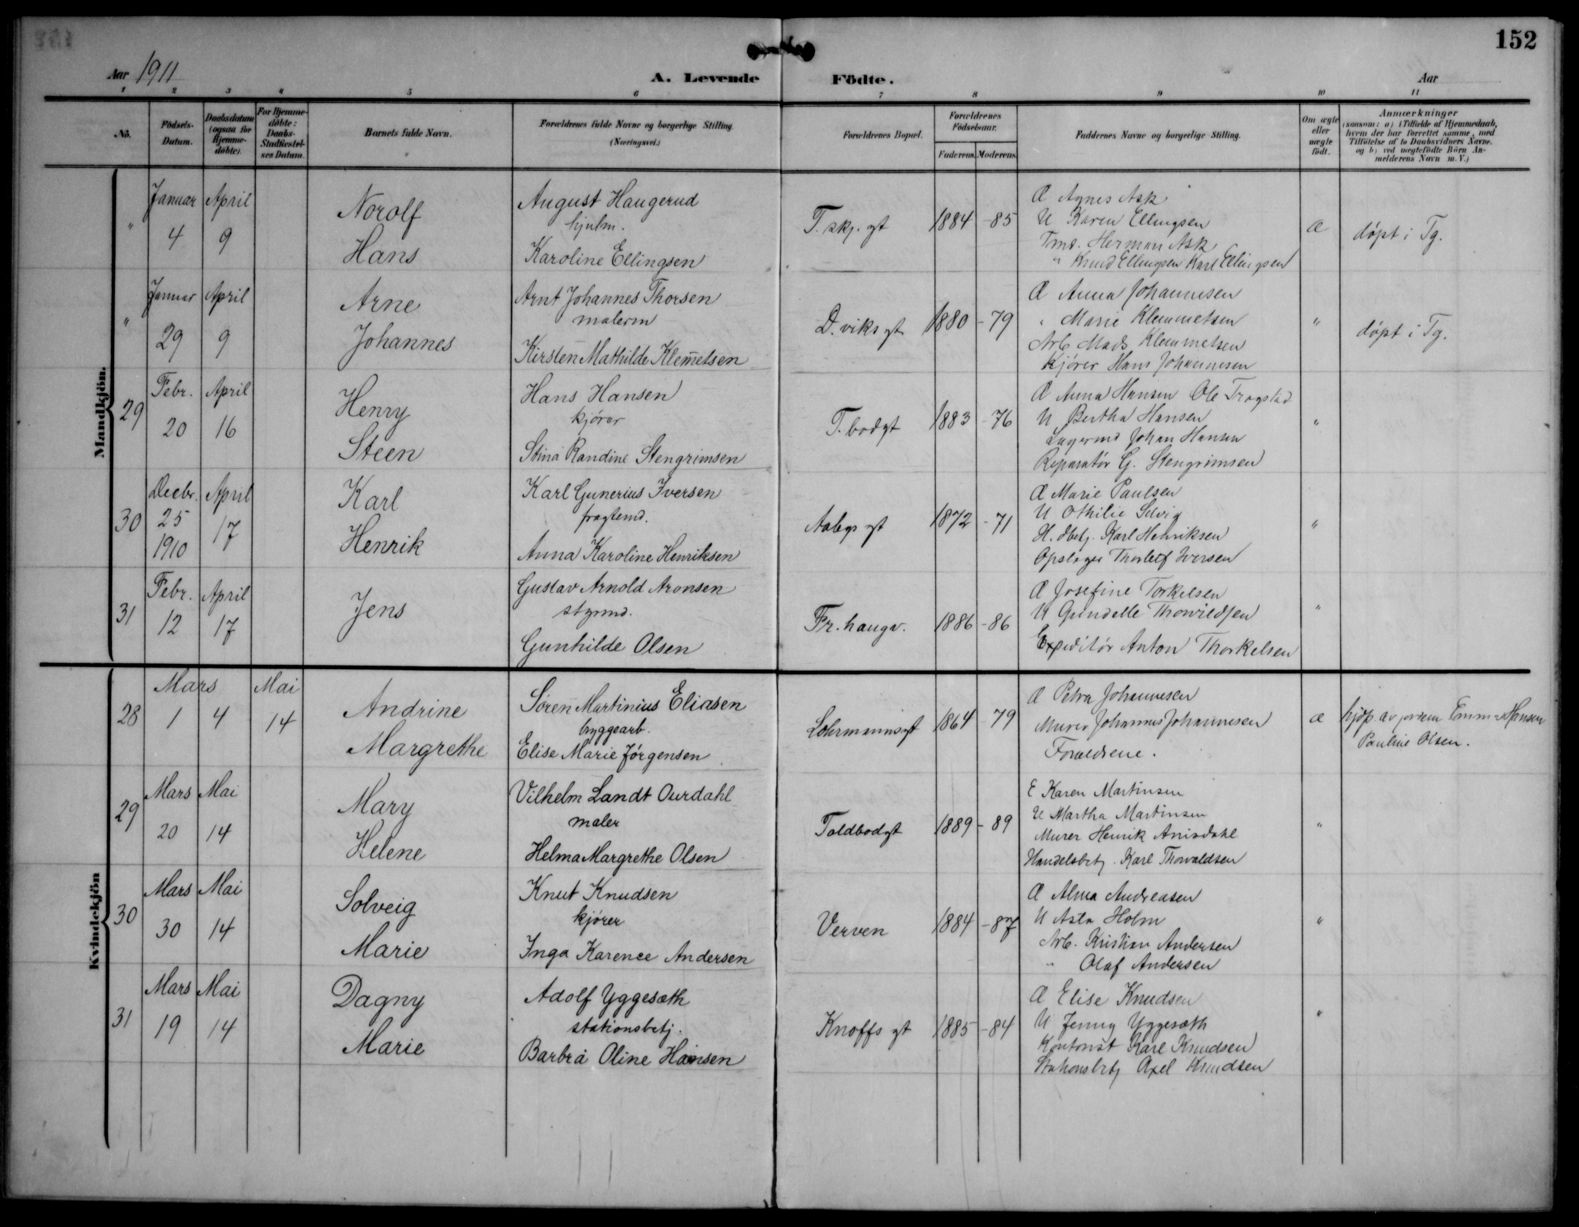 152
Aar 1911
A. Levende Födte.
Aar
1 2 3 4 5 6 7 8 9 10 11
No.
Födsels-Datum.
Daabsdatum (ogsaa for Hjemmedöbte).
For Hjemmedöbte: Daabs-Stadfæstelses Datum.
Barnets fulde Navn.
Forældrenes fulde Navne og borgerlige Stilling (Næringsvei.)
Forældrenes Bopæl.
Forældrenes Födselsaar.
Faderens. Moderens.
Faddernes Navne og borgerlige Stilling.
Om ægte eller uægte födt.
Anmærkninger
(saasom: a) i Tilfælde af Hjemmedaab, hvem der har forrettet samme, med Tilföielse af to Daabsvidners Navne, og b) ved uægtefödte Börn Anmelderens Navn m. V.)
Mandkjön.
" Januar 4 April 9
Norolf
Hans
August Haugerud
hjulm.
Karoline Ellingsen
T. skj. gt 1884 - 85
Æ Agnes Ask
U Karen Ellingsen
Tms. Herman Ask
" Knud Ellingsen Karl Ellingsen
æ
døpt i Tg.
" Januar 29 April 9
Arne
Johannes
Arnt Johannes Thorsen
malerm
Kirsten Mathilde Klemetsen
D. viks gt 1880 - 79
Æ Anna Johannesen
" Marie Klemmetsen
Arb. Mads Klemmetsen
Kjører Hans Johannesen
"
døpt i Tg.
29 Febr. 20 April 16
Henry
Steen
Hans Hansen
kjører
Stina Randine Stengrimsen
T. bodgt 1883 - 76
Æ Anna Hansen Ole Trogstad
U Bertha Hansen
Lagermd Johan Hansen
Reparatør G. Stengrimsen
"
30 Decbr. 25 1910 April 17
Karl
Henrik
Karl Gunerius Iversen
fragtemd.
Anna Karoline Henriksen
Aabys gt 1872 - 71
Æ Marie Paulsen
U Othilie Selvig
H. btj. Karl Henriksen
Opslager Thorleif Iversen
"
31 Febr. 12 April 17
Jens
Gustav Arnold Aronsen
styrmd.
Gunhilde Olsen
Fr. haugv. 1886 - 86
Æ Josefine Torkelsen
U Gundelle Thorvildsen
Expeditør Anton Thorkelsen
"
Kvindekjön
28 Mars 1 4 Mai 14
Andrine
Margrethe
Søren Martinius Eliasen
byggearb.
Elise Marie Jørgensen
Lohrmannsgt 1864 - 79
Æ Petra Johannesen
Murer Johannes Johannesen
Forældrene.
æ
hjdp av jordm Emma Hansen
Pauline Olsen.
29 Mars 20 Mai 14
Mary
Helene
Vilhelm Landt Ourdahl
maler
Helma Margrethe Olsen
Toldbodgt 1889 - 89
E Karen Martinsen
U Martha Martinsen
Murer Henrik Anisdahl
Handelsbetj. Karl Thorvaldsen
"
30 Mars 30 Mai 14
Solveig
Marie
Knut Knudsen
kjører
Inga Karence Andersen
Verven 1884 - 87
Æ Alma Andreasen
U Asta Holm
Arb. Kristian Andersen
" Olaf Andersen
"
31 Mars 19 Mai 14
Dagny
Marie
Adolf Yggesæth
stationsbetj.
Barbra Oline Hansen
Knoffs gt 1885 - 84
Æ Elise Knudsen
U Jenny Yggesæth
Kontorist Karl Knudsen
Stationsbetj Axel Knudsen
"